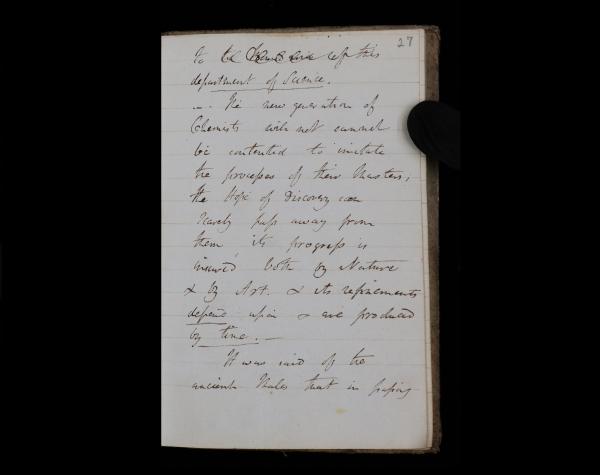 27
to the
department of Science.
— The new generation of
Chemists will not cannot
be contented to imitate
the processes of their Masters;
the Hope of Discovery can
rarely pass away from
them its progress is
insured both by Nature
& by Art. & its refinements
depend upon & are produced
by time. —
It was said of the
ancient that in passing